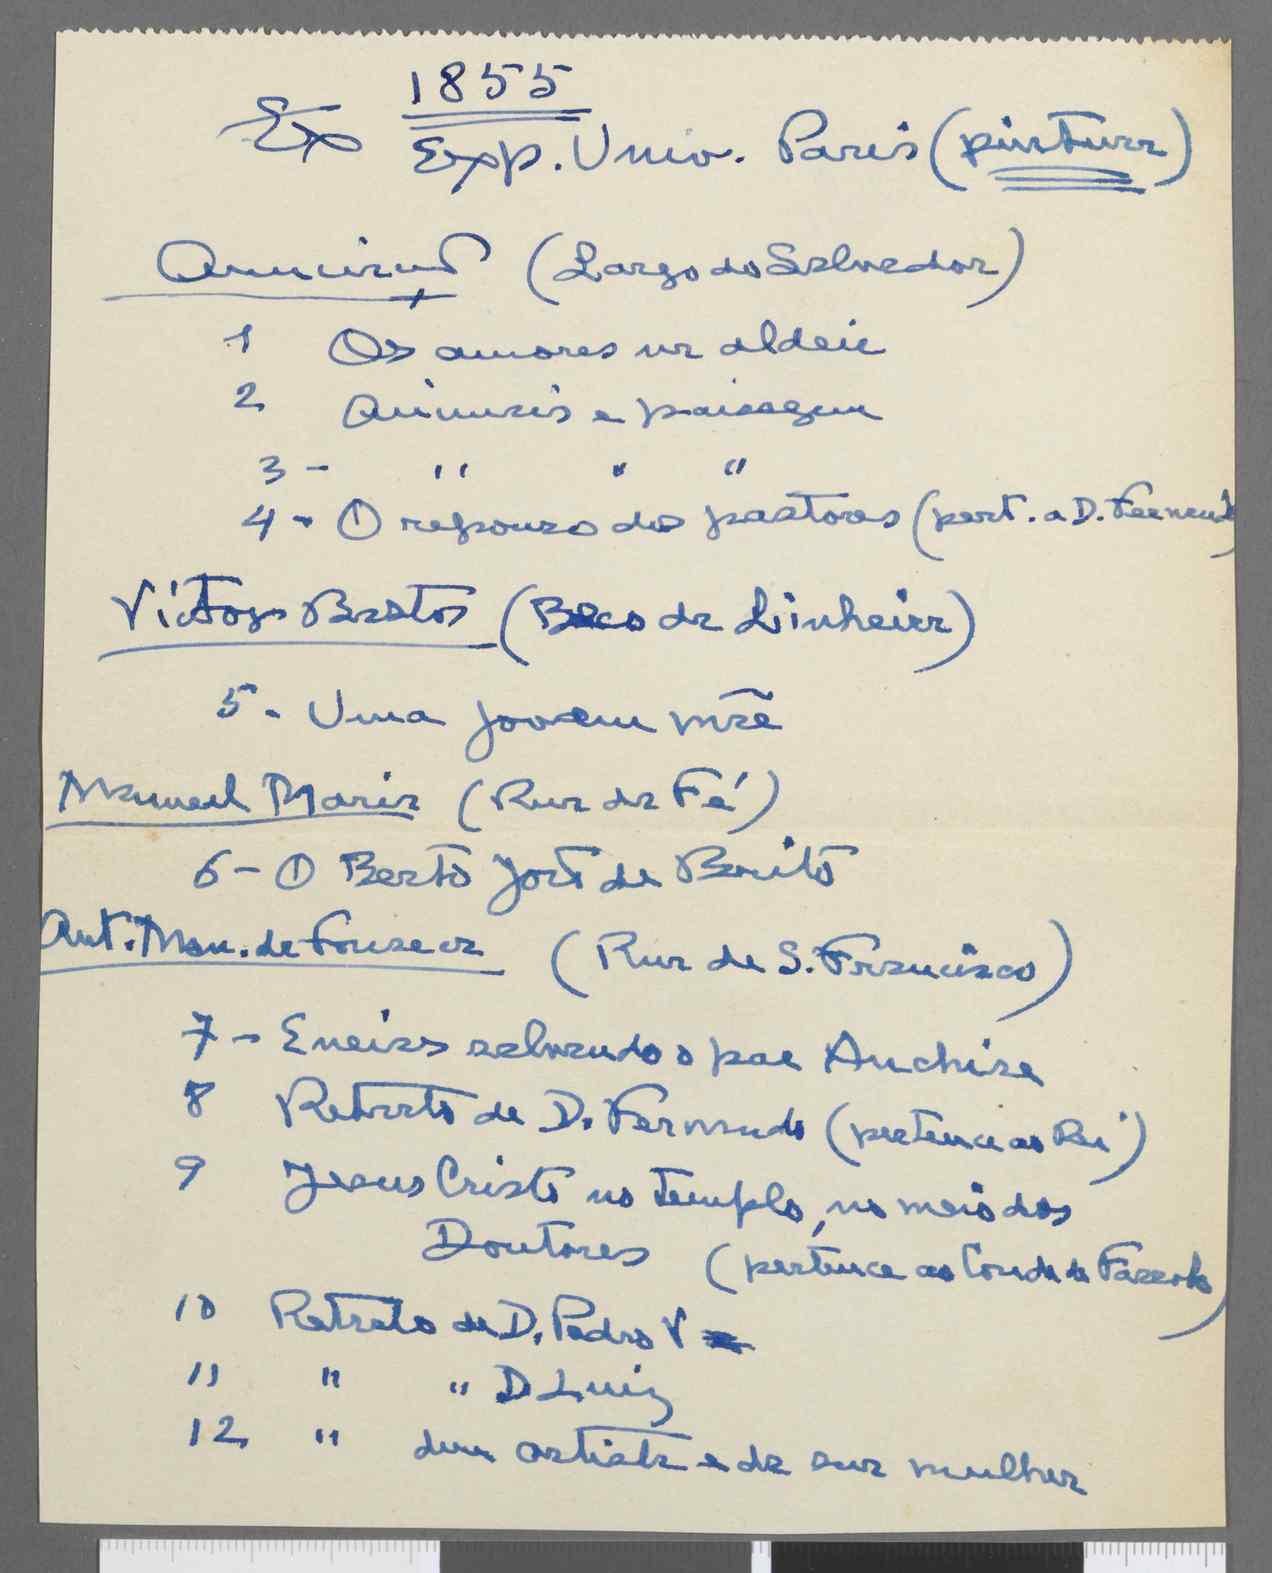 1855
Ex Exp. Univ. Paris (pintura)
Anunciação (Largo do Salvador)
1 Os amores na aldeia
2 Animais e paisagem
3 - " " "
4 - O repouso dos pastores (pert. a D. Fernando)
Victor Bastos (Beco da Linheira)
5 - Uma jovem mãe
Manuel Maria (Rua da Fé)
6 - O Berto José de Brito
Ant. Man. da Fonseca (Rua de S. Francisco)
7 - Eneias salvando o pae Anchise
8 Retrato de D. Fernando (pertence ao Rei)
9 Jesus Cristo no Templo, no meio dos
Doutores (pertence ao Conde de Farrobo)
10 Retrato de D. Pedro V
11 " " D Luiz
12 " dum artista e da sua mulher